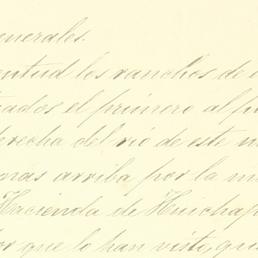 enerales.
entud los ranchos de
ados el primero al p
derecha del río de este m
mas arriba por la m
Hacienda de Huichap
or que lo han visto, qui